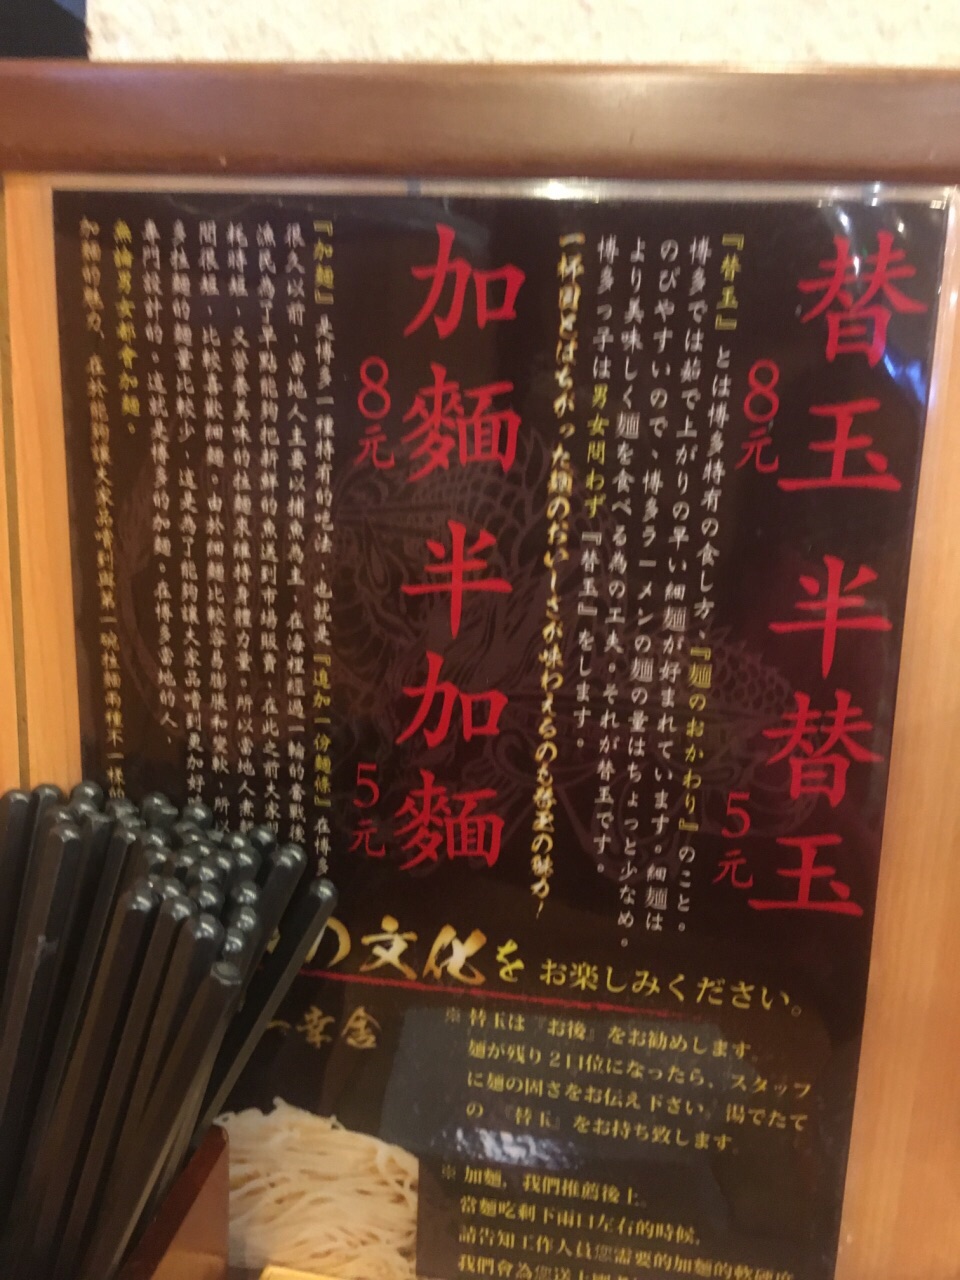 替玉 半替玉
8元
5元
『替玉』とは博多特有の食し方、『麺のおかわり』のこと。
博多では茹で上がりの早い細麺が好まれています。細麺は
のびやすいので、博多ラーメンの麺の量はちょっと少なめ。
より美味しく麺を食べる為の工夫。それが替玉です。
博多っ子は男女問わず『替玉』をします。
一杯目とはちがった麺のおいしさが味わえるのも替玉の魅力!
加麵 半加麵
8元
5元
『加麵』是博多一種特有的吃法、也就是『追加一份麵條』在博多
很久以前、當地人主要以捕魚為主、在海裡經過一輪的奮戰後
漁民為了早點能夠把新鮮的魚送到市場販賣，在此之前大家
耗時短、又營養美味的拉麵來維持身體力量。所以當地人煮
間很短、比較喜歡細麵。由於細麵比較容易膨脹和變軟、所以
多拉麵的麵量比較少、這是為了能夠讓大家品嚐到更加好
專門設計的。這就是博多的加麵。在博多當地的人、
無論男女都會加麵。
加麵的魅力、在於能夠讓大家品嚐到與第一碗拉麵兩種不一樣的
の文化をお楽しみください。
一幸舎
※替玉は『お後』をお勧めします。
麺が残り2口位になったら、スタッフ
に麺の固さをお伝え下さい。湯でたて
の『替玉』をお持ち致します。
※加麵，我們推薦後上。
當麵吃剩下兩口左右的時候，
請告知工作人員您需要的加麵的軟硬度
我們會為您送上